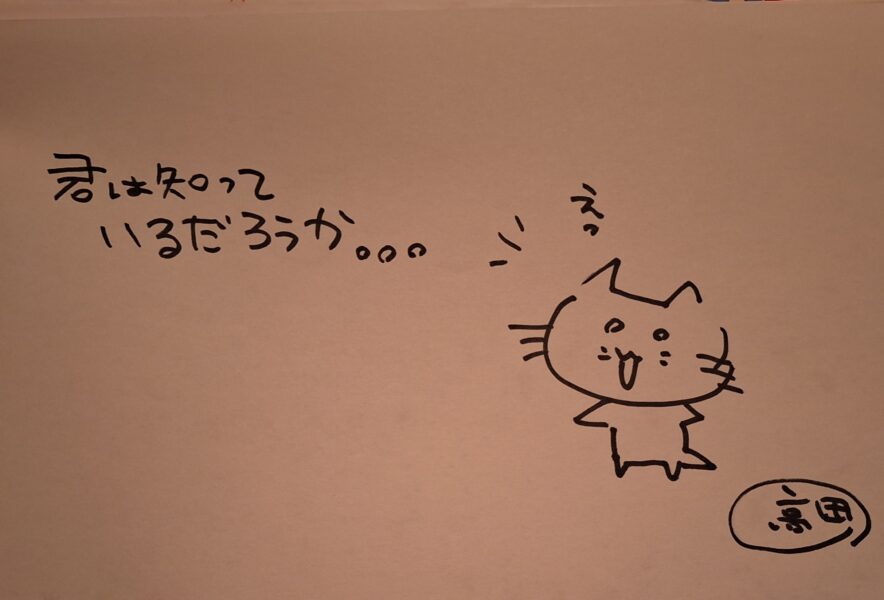 君は知って
いるだろうか。。。
えっ
高田